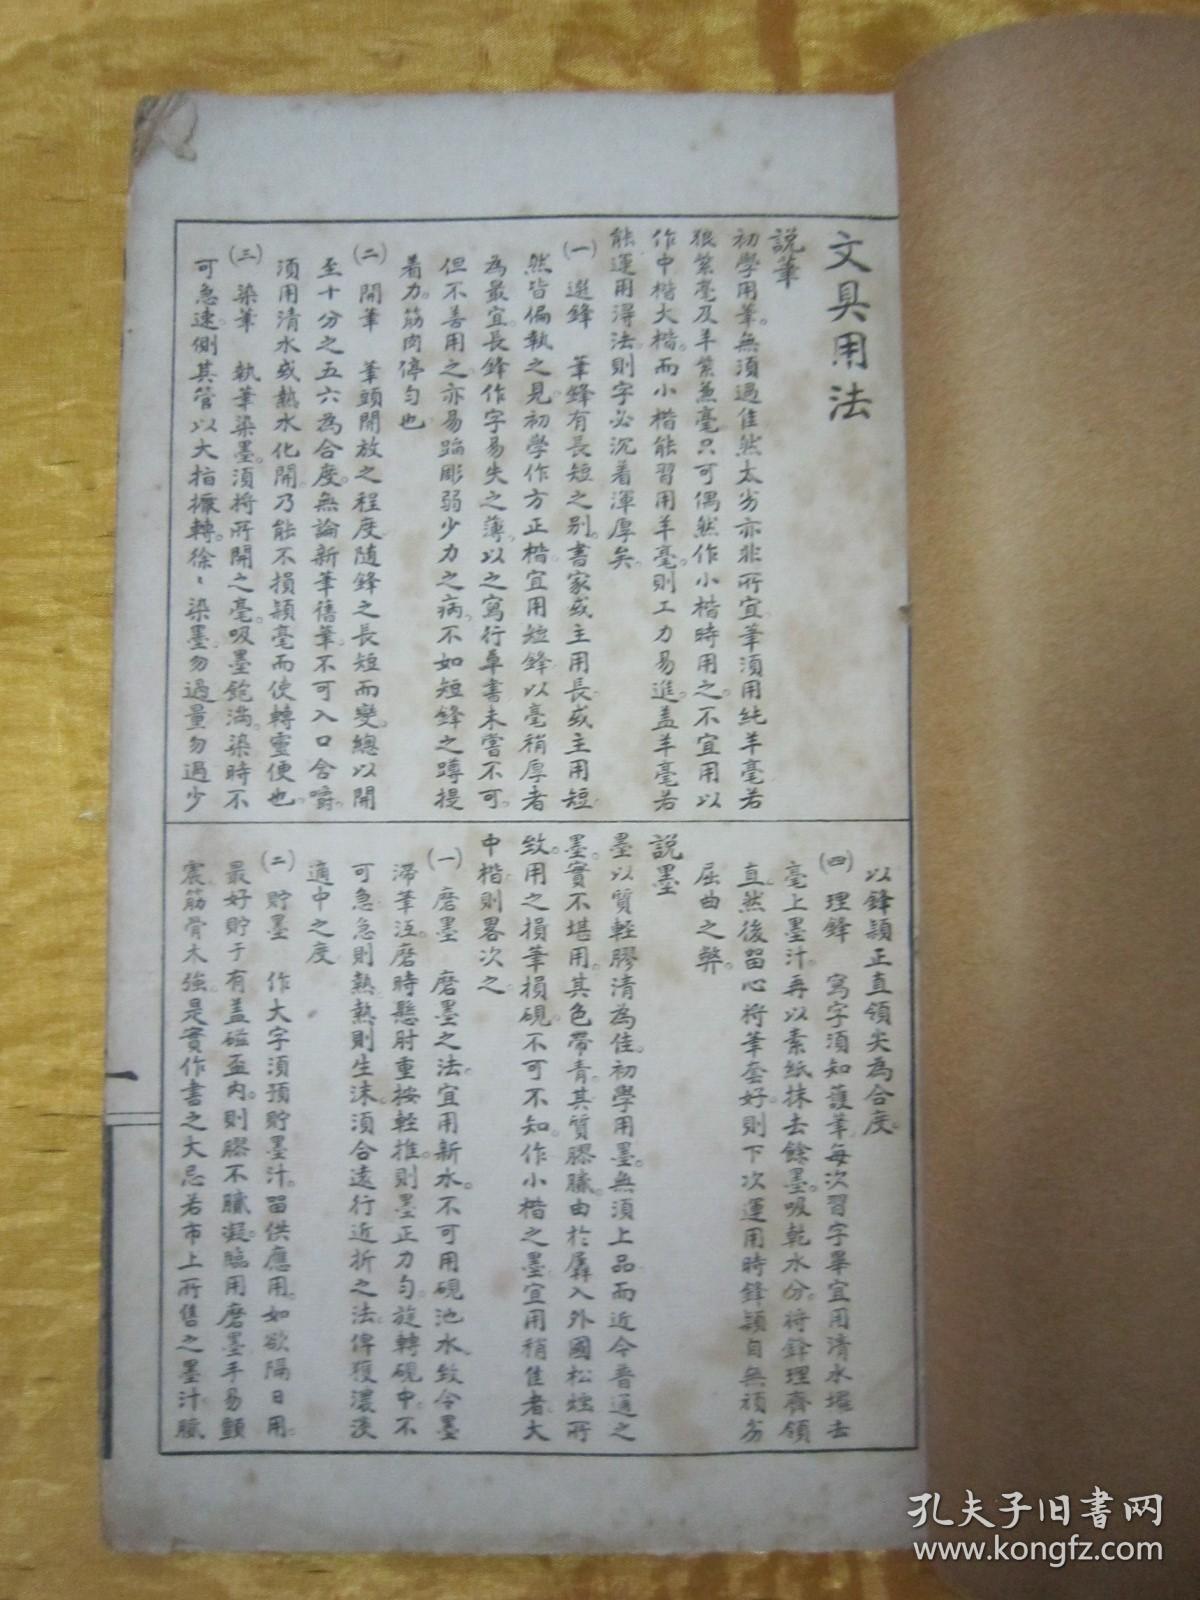 文具用法
説筆
初學用筆。無須過佳然太劣亦非所宜筆須用純羊毫若
狼紫毫及羊紫兼毫只可偶然作小楷時用之。不宜用以
作中楷大楷。而小楷能習用羊毫。則工力易進。盖羊毫若
能運用得法。則字必沉着渾厚矣。
㈠ 選鋒 筆鋒有長短之别。書家或主用長。或主用短。
然皆偏執之見。初學作方正楷。宜用短鋒。以毫稍厚者
為最宜。長鋒作字易失之薄。以之寫行草書未嘗不可。
但不善用之。亦易蹈彫弱少力之病。不如短鋒之蹲提
着力。筋肉停勻也
㈡ 開筆 筆頭開放之程度。随鋒之長短而變。總以開
至十分之五六為合度。無論新筆舊筆。不可入口含嚼。
須用清水或熱水化開。乃能不損穎毫而使轉靈便也。
㈢ 染筆 執筆染墨。須将所開之毫。吸墨飽滿。染時不
可急速。側其管以大指捩轉。徐々染墨。勿過量勿過少
以鋒穎正直領尖為合度。
㈣ 理鋒 寫字須知護筆。每次習字畢。宜用清水擢去
毫上墨汁。再以素紙抹去餘墨。吸乾水分。将鋒理齊領
直。然後留心将筆套好。則下次運用時。鋒穎自無頑劣
屈曲之弊。
説墨
墨以質輕膠清為佳。初學用墨。無須上品。而近今普通之
墨。實不堪用。其色帶青。其質膠膩。由於羼入外國松烟所
致。用之損筆損硯。不可不知。作小楷之墨。宜用稍佳者。大
中楷則畧次之
㈠ 磨墨 磨墨之法。宜用新水。不可用硯池水。致令墨
滯筆沍。磨時懸肘重按輕推。則墨正力勻。旋轉硯中。不
可急。急則熱。熱則生沫。須合遠行近折之法。俾獲濃淡
適中之度
㈡ 貯墨 作大字須預貯墨汁。留供應用。如欲隔日用。
最好貯于有盖磁盃内。則膠不膩凝。臨用磨墨。手易顫
震。筋骨木強。是實作書之大忌。若市上所售之墨汁。膩
一
孔夫子旧书网
www.kongfz.com